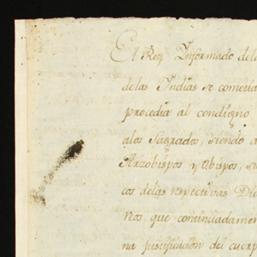 El Rey Informado de l
de las Indias se cometia
procedia al condigno
a los Sagrados, siendo a
Arzobispos y Obispos, s
cos de las respectivas Dio
nos que continuadamen
na justificacion de cuerp